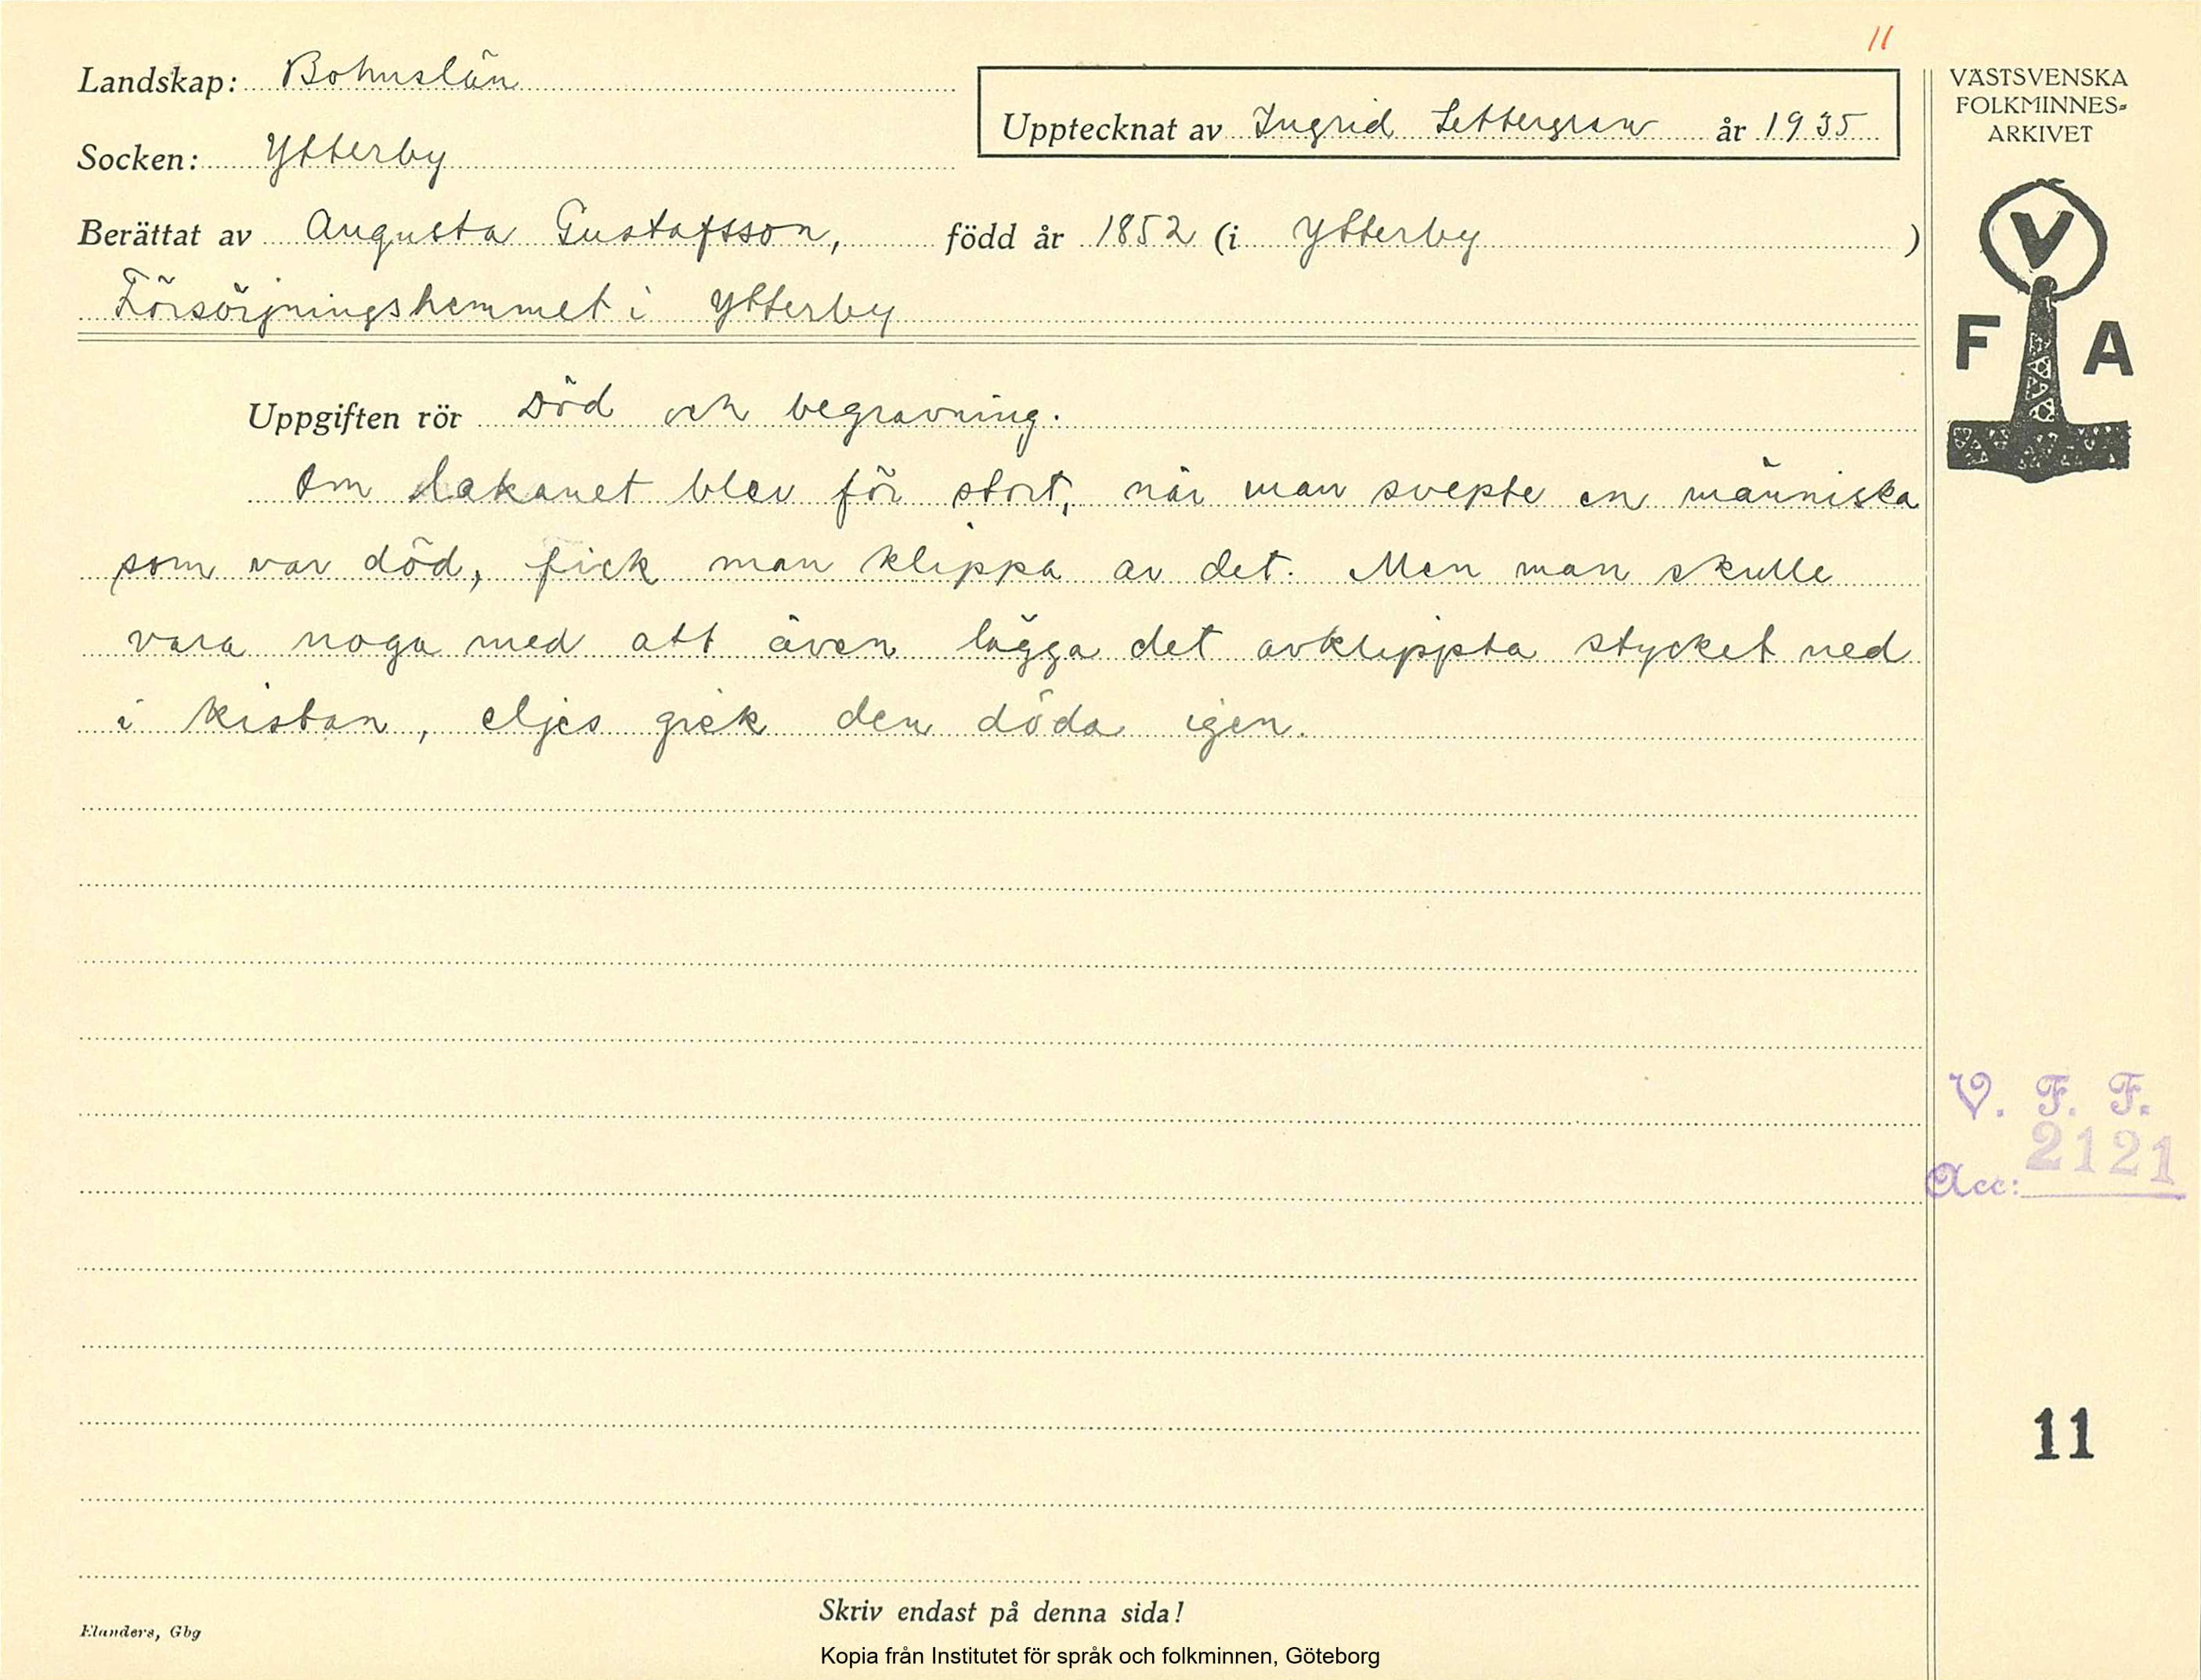 11
Landskap: Bohuslän
Socken: Ytterby
Upptecknat av Ingrid Settergren år 1935
Berättat av Augusta Gustafsson, född år 1852 (i Ytterby )
Försörjningshemmet i Ytterby
Uppgiften rör Död och begravning.
Om lakanet blev för stort, när man svepte en människa
som var död, fick man klippa av det. Men man skulle
vara noga med att även lägga det avklippta stycket ned
i kistan, eljes gick den döda igen.
VÄSTSVENSKA
FOLKMINNES-
ARKIVET
V
F A
V. F. F.
2121
Acc:
11
Skriv endast på denna sida!
Elanders, Gbg
Kopia från Institutet för språk och folkminnen, Göteborg